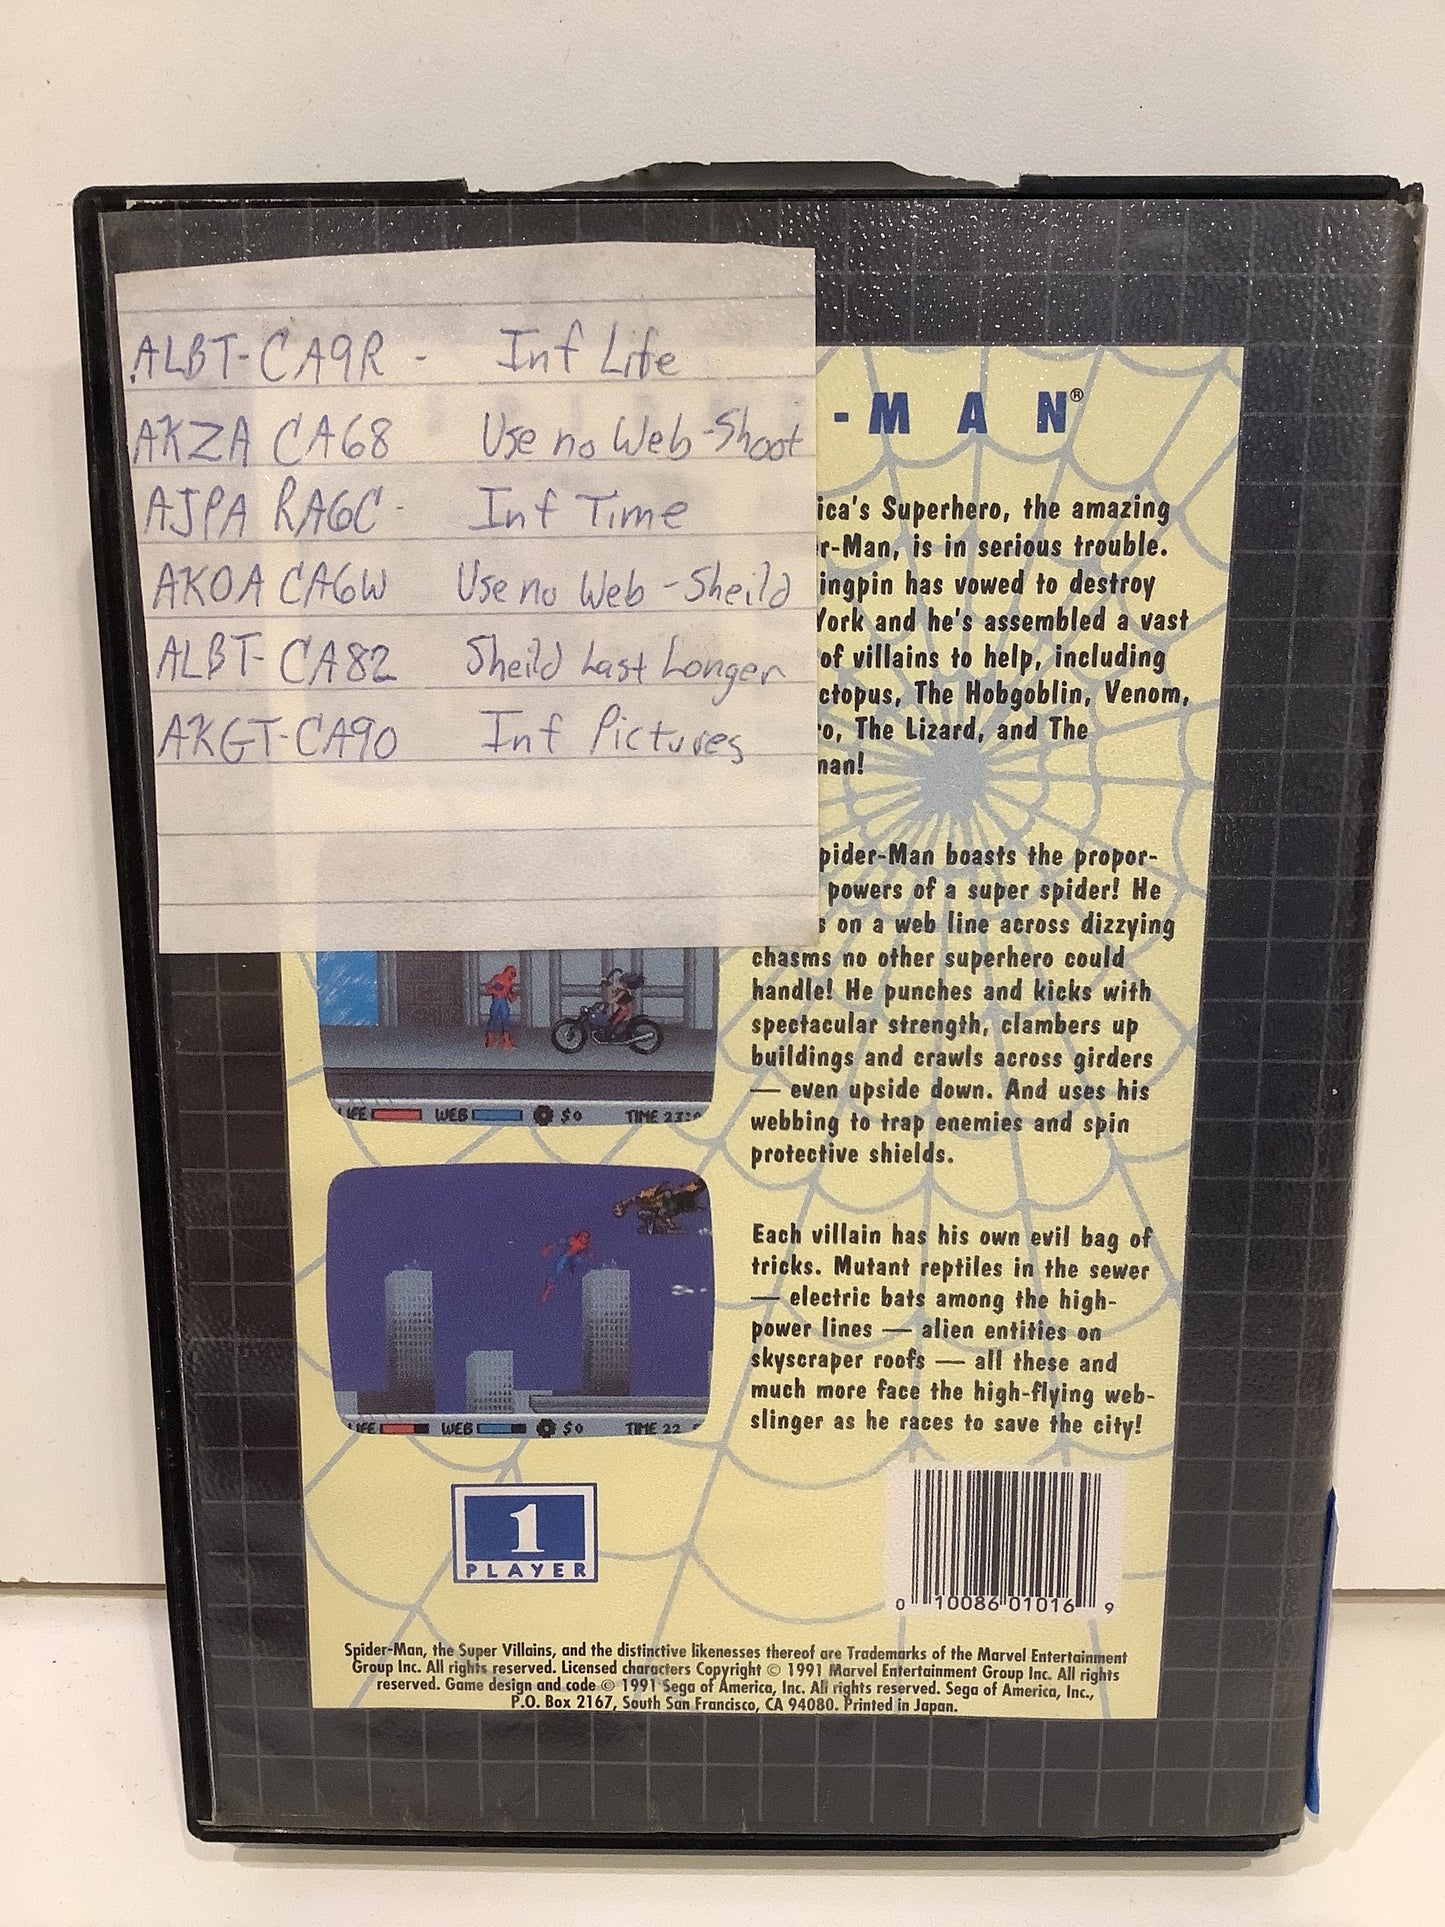 ALBT-CA9R - Inf Life
AKZA CA68 Use no Web-Shoot
AJPA RA6C- Inf Time
AKOA CA6W Use no Web-Sheild
ALBT-CA82 Sheild Last Longer
AKGT-CA90 Inf Pictures
-MAN®
ica's Superhero, the amazing
r-Man, is in serious trouble.
ingpin has vowed to destroy
York and he's assembled a vast
of villains to help, including
ctopus, The Hobgoblin, Venom,
ro, The Lizard, and The
man!
pider-Man boasts the propor-
powers of a super spider! He
s on a web line across dizzying
chasms no other superhero could
handle! He punches and kicks with
spectacular strength, clambers up
buildings and crawls across girders
— even upside down. And uses his
webbing to trap enemies and spin
protective shields.
LIFE WEB $0 TIME 23:0
Each villain has his own evil bag of
tricks. Mutant reptiles in the sewer
— electric bats among the high-
power lines — alien entities on
skyscraper roofs — all these and
much more face the high-flying web-
slinger as he races to save the city!
LIFE WEB $0 TIME 22
1
PLAYER
0 10086 01016 9
Spider-Man, the Super Villains, and the distinctive likenesses thereof are Trademarks of the Marvel Entertainment
Group Inc. All rights reserved. Licensed characters Copyright © 1991 Marvel Entertainment Group Inc. All rights
reserved. Game design and code © 1991 Sega of America, Inc. All rights reserved. Sega of America, Inc.,
P.O. Box 2167, South San Francisco, CA 94080. Printed in Japan.